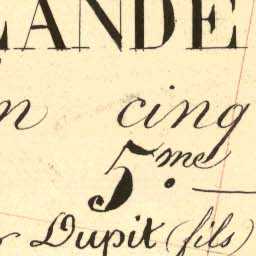 LANDE
n cinq
5.me
Dupit (fils)